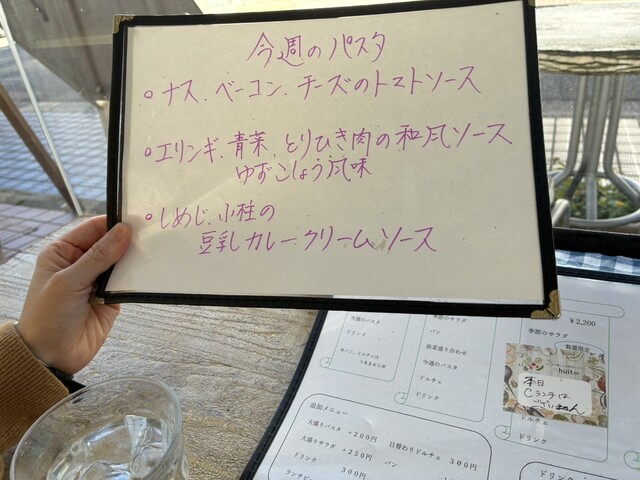 今週のパスタ
○ナス、ベーコン、チーズのトマトソース
○エリンギ、青菜、とりひき肉の和風ソース
ゆずこしょう風味
○しめじ、小柱の
豆乳カレークリームソース
今週のパスタ
ドリンク
季節のサラダ
パン
前菜盛り合わせ
今週のパスタ
ドルチェ
ドリンク
¥2,200
季節のサラダ
数量限定
huit
本日
Cランチは
ございません
ドルチェ
ドリンク
追加メニュー
大盛りパスタ +200円
大盛りサラダ +250円
ドリンク 300円
日替わりドルチェ 300円
パン